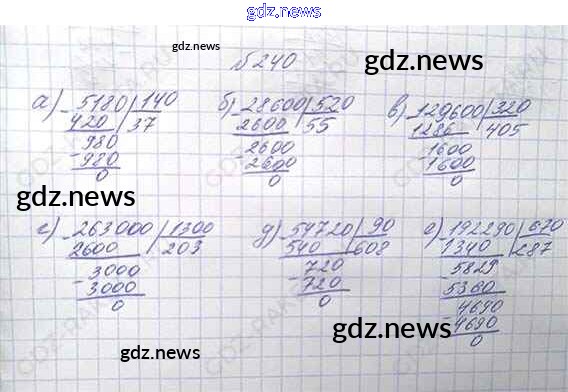 gdz.news
gdz.news
№ 240
gdz.news
а) 5180 | 140
420 | 37
980
- 980
0
б) - 28600 | 520
2600 | 55
2600
- 2600
0
в) - 129600 | 320
1286 | 405
1600
- 1600
0
gdz.news
г) - 263000 | 1300
2600 | 203
3000
- 3000
0
д) - 54720 | 90
540 | 608
720
- 720
0
е) - 192290 | 670
1340 | 287
5829
- 5360
4690
- 4690
0
gdz.news
gdz.news